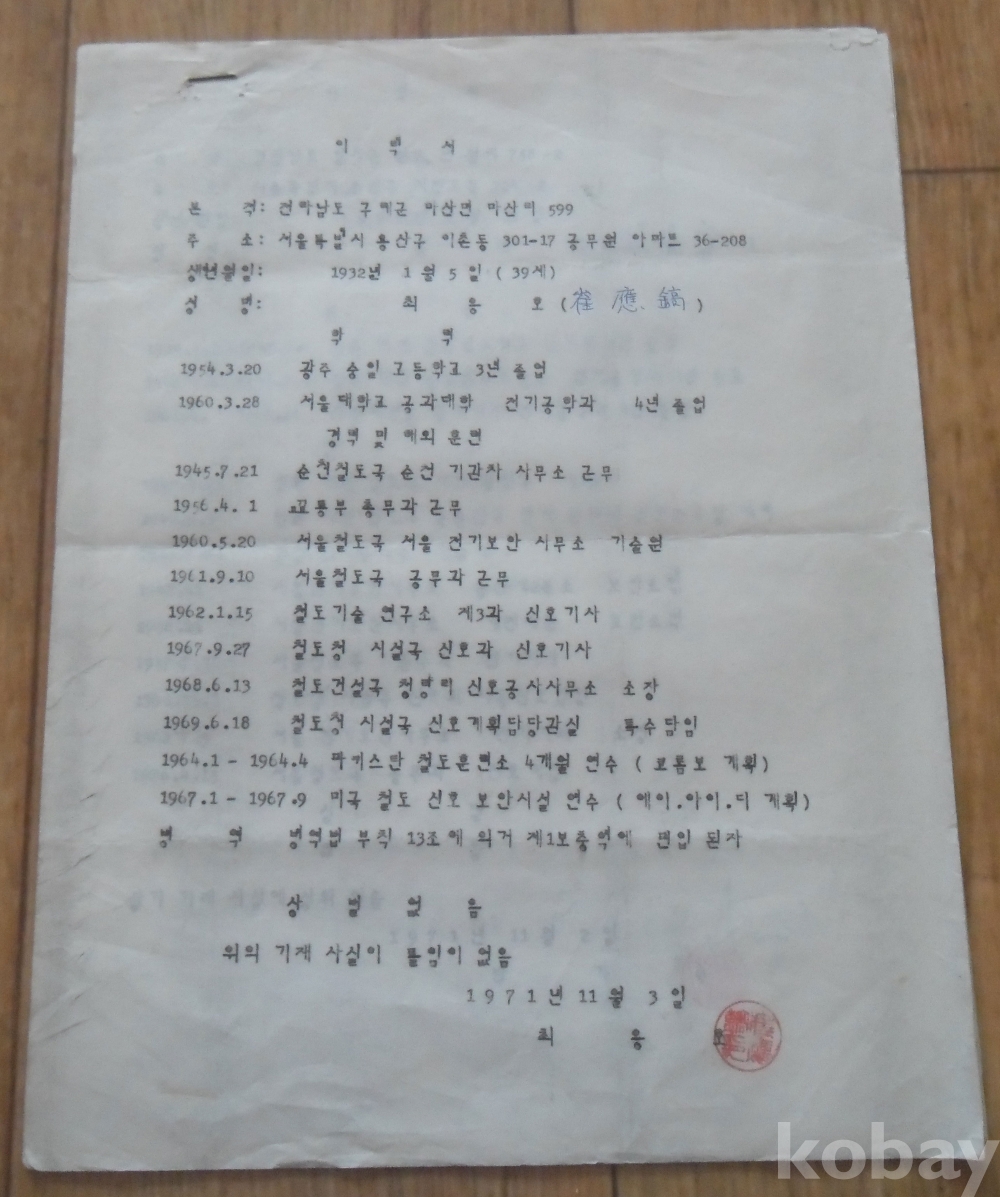 이 력 서
본 적: 전라남도 구례군 마산면 마산리 599
주 소: 서울특별시 용산구 이촌동 301-17 공무원 아파트 36-208
생년월일: 1932년 1월 5일 (39세)
성 명: 최 응 호 (崔 應 鎬)
학 력
1954.3.20 광주 숭일 고등학교 3년 졸업
1960.3.28 서울대학교 공과대학 전기공학과 4년 졸업
경력 및 해외 훈련
1945.7.21 순천철도국 순천 기관차 사무소 근무
1956.4. 1 교통부 총무과 근무
1960.5.20 서울철도국 서울 전기보안 사무소 기술원
1961.9.10 서울철도국 공무과 근무
1962.1.15 철도기술 연구소 제3과 신호기사
1967.9.27 철도청 시설국 신호과 신호기사
1968.6.13 철도건설국 청량리 신호공사사무소 소장
1969.6.18 철도청 시설국 신호계획담당관실 특수담임
1964.1 - 1964.4 파키스탄 철도훈련소 4개월 연수 ( 코롬보 계획)
1967.1 - 1967.9 미국 철도 신호 보안시설 연수 ( 에이.아이.디 계획)
병 역 병역법 부칙 13조에 의거 제1보충역에 편입 된자
상 벌 없 음
위의 기재 사실이 틀임이 없음
1971년 11월 3일
최 응 호
kobay